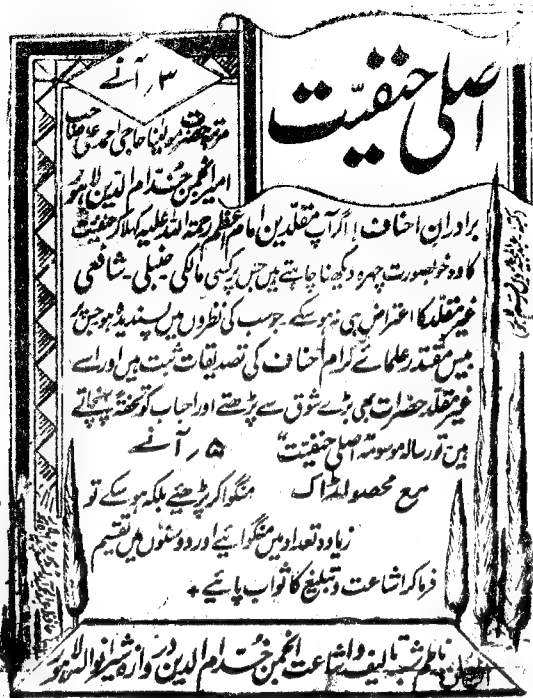 اصلی حنفیت
۳؍ آنے
مرتبہ حضرت مولینا حاجی احمد علی صاحب
امیر انجمن خدام الدین لاہور
برادرانِ احناف! اگر آپ مقلدین امام اعظم رحمۃ اللہ علیہ کہلا کر حنفیت
کا وہ خوبصورت چہرہ دیکھنا چاہتے ہیں جس پر کسی مالکی۔ حنبلی۔ شافعی
غیر مقلد کا اعتراض ہی نہ ہو سکے۔ جو سب کی نظروں میں پسندیدہ ہو جس پر
بیس مقتدر علمائے کرام احناف کی تصدیقات ثبت ہیں اور اسے
غیر مقلد حضرات بھی بڑے شوق سے پڑھتے اور احباب کو تحفۃً پہنچاتے
ہیں تو رسالہ موسومہ اصلی حنفیت ۵؍ آنے
مع محصولڈاک منگوا کر پڑھئے بلکہ ہو سکے تو
زیادہ تعداد میں منگوائیے اور دوستوں میں تقسیم
فرما کر اشاعت و تبلیغ کا ثواب پائیے +
ناظم شعبہ تالیف و اشاعت انجمن خدام الدین دروازہ شیرانوالہ لاہور